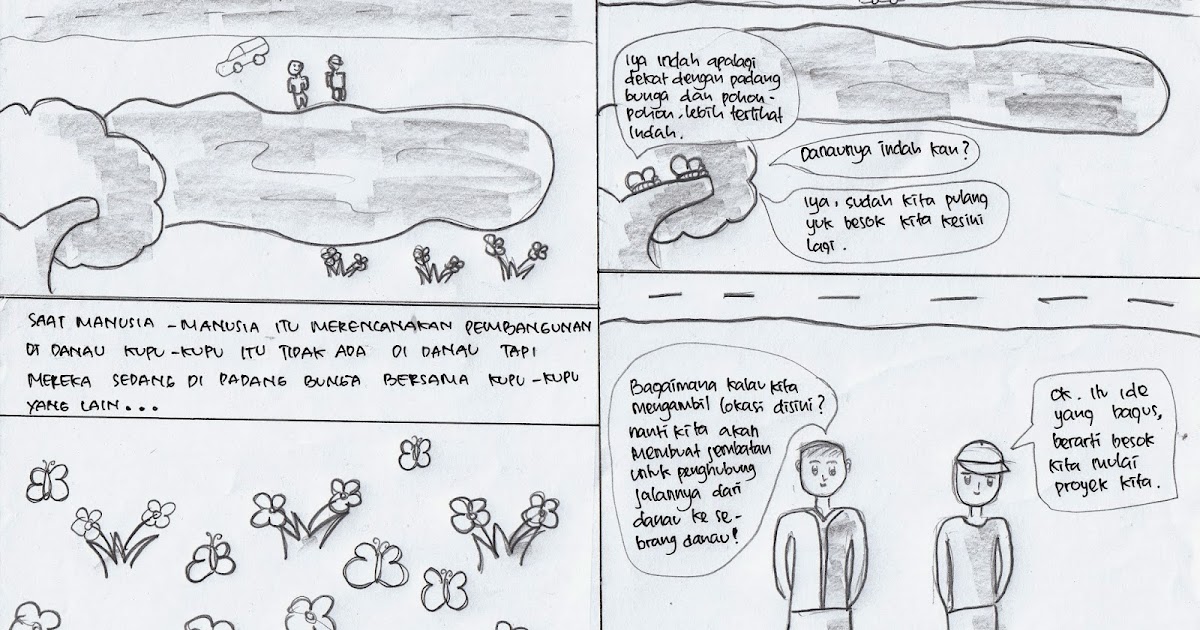 SAAT MANUSIA -MANUSIA ITU MERENCANAKAN PEMBANGUNAN
DI DANAU KUPU-KUPU ITU TIDAK ADA DI DANAU TAPI
MEREKA SEDANG DI PADANG BUNGA BERSAMA KUPU-KUPU
YANG LAIN...
Iya indah apalagi
dekat dengan padang
bunga dan pohon-
pohon, lebih terlihat
indah.
Danaunya indah kan?
Iya, sudah kita pulang
yuk besok kita kesini
lagi.
Bagaimana kalau kita
mengambil lokasi disini?
nanti kita akan
membuat jembatan
untuk penghubung
jalannya dari
danau ke se-
brang danau!
Ok. Itu ide
yang bagus,
berarti besok
kita mulai
proyek kita.